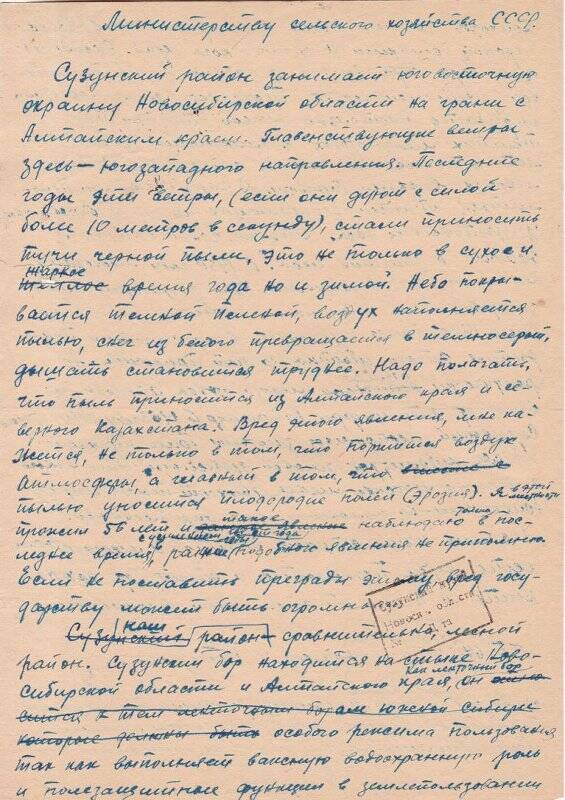 Министерству сельского хозяйства СССР.
Сузунский район занимает юговосточную
окраину Новосибирской области на грани с
Алтайским краем. Главенствующие ветры
здесь — югозападного направления. Последние
годы эти ветры, (если они дуют с силой
боли 10 метров в секунду), стали приносить
тучи черной пыли. Это не только в сухое и
жаркое
время года но и зимой. Небо покры-
вается темной пеленой, воздух наполняется
пылью, снег из белого превращается в темносерый,
дышать становится труднее. Надо полагать,
что пыль приносится из Алтайского края и се-
верного Казахстана. Вред этого явления, мне ка-
жется, не только в том, что портится воздух
атмосферы, а главный в том, что
пылью уносится плодородие полей (эрозия). Я в этой местности
прожил 56 лет и такое наблюдаю только в пос-
леднее время, ранее подобного явления не припомню.
Если не поставить преграды этому, вред госу-
дарству может быть огромный.
Сузунский район
Новосиб. области
№
Сузунский наш район сравнительно лесной
район. Сузунский бор находится на стыке Ново-
сибирской области и Алтайского края, он как ленточный бор
которые должны быть особого режима пользования
так как выполняет важную водоохранную роль
и полезащитные функции в землепользовании